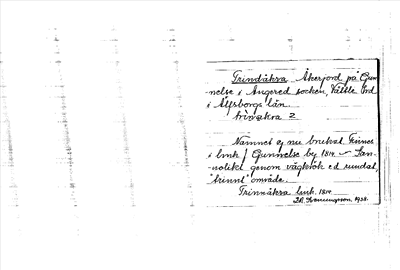 Trindåkra Åkerjord på Gun-
nelse i Angered socken, Vättle hd
i Älfsborgs län.
2
Namnet ej nu brukat. Finnes
i bruk / Gunnelse by 1814. – San-
nolikt genom vägkrök ed rundat,
"trinnt" område.
Trinnåkra bruk. 1814
1938.